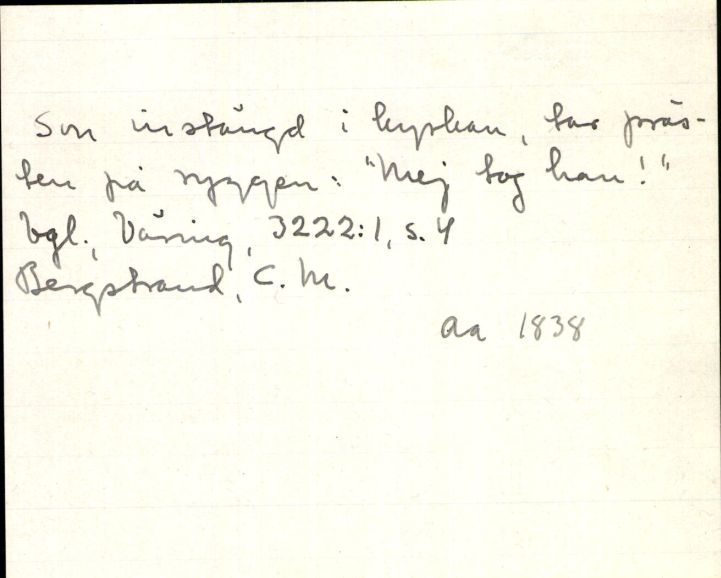 Son instängd i kyrkan, tar präs-
ten på ryggen: "Mej tog han!"
Vgl., Våring, 3222:1, s. 4
Bergstrand, C. M.
Aa 1838